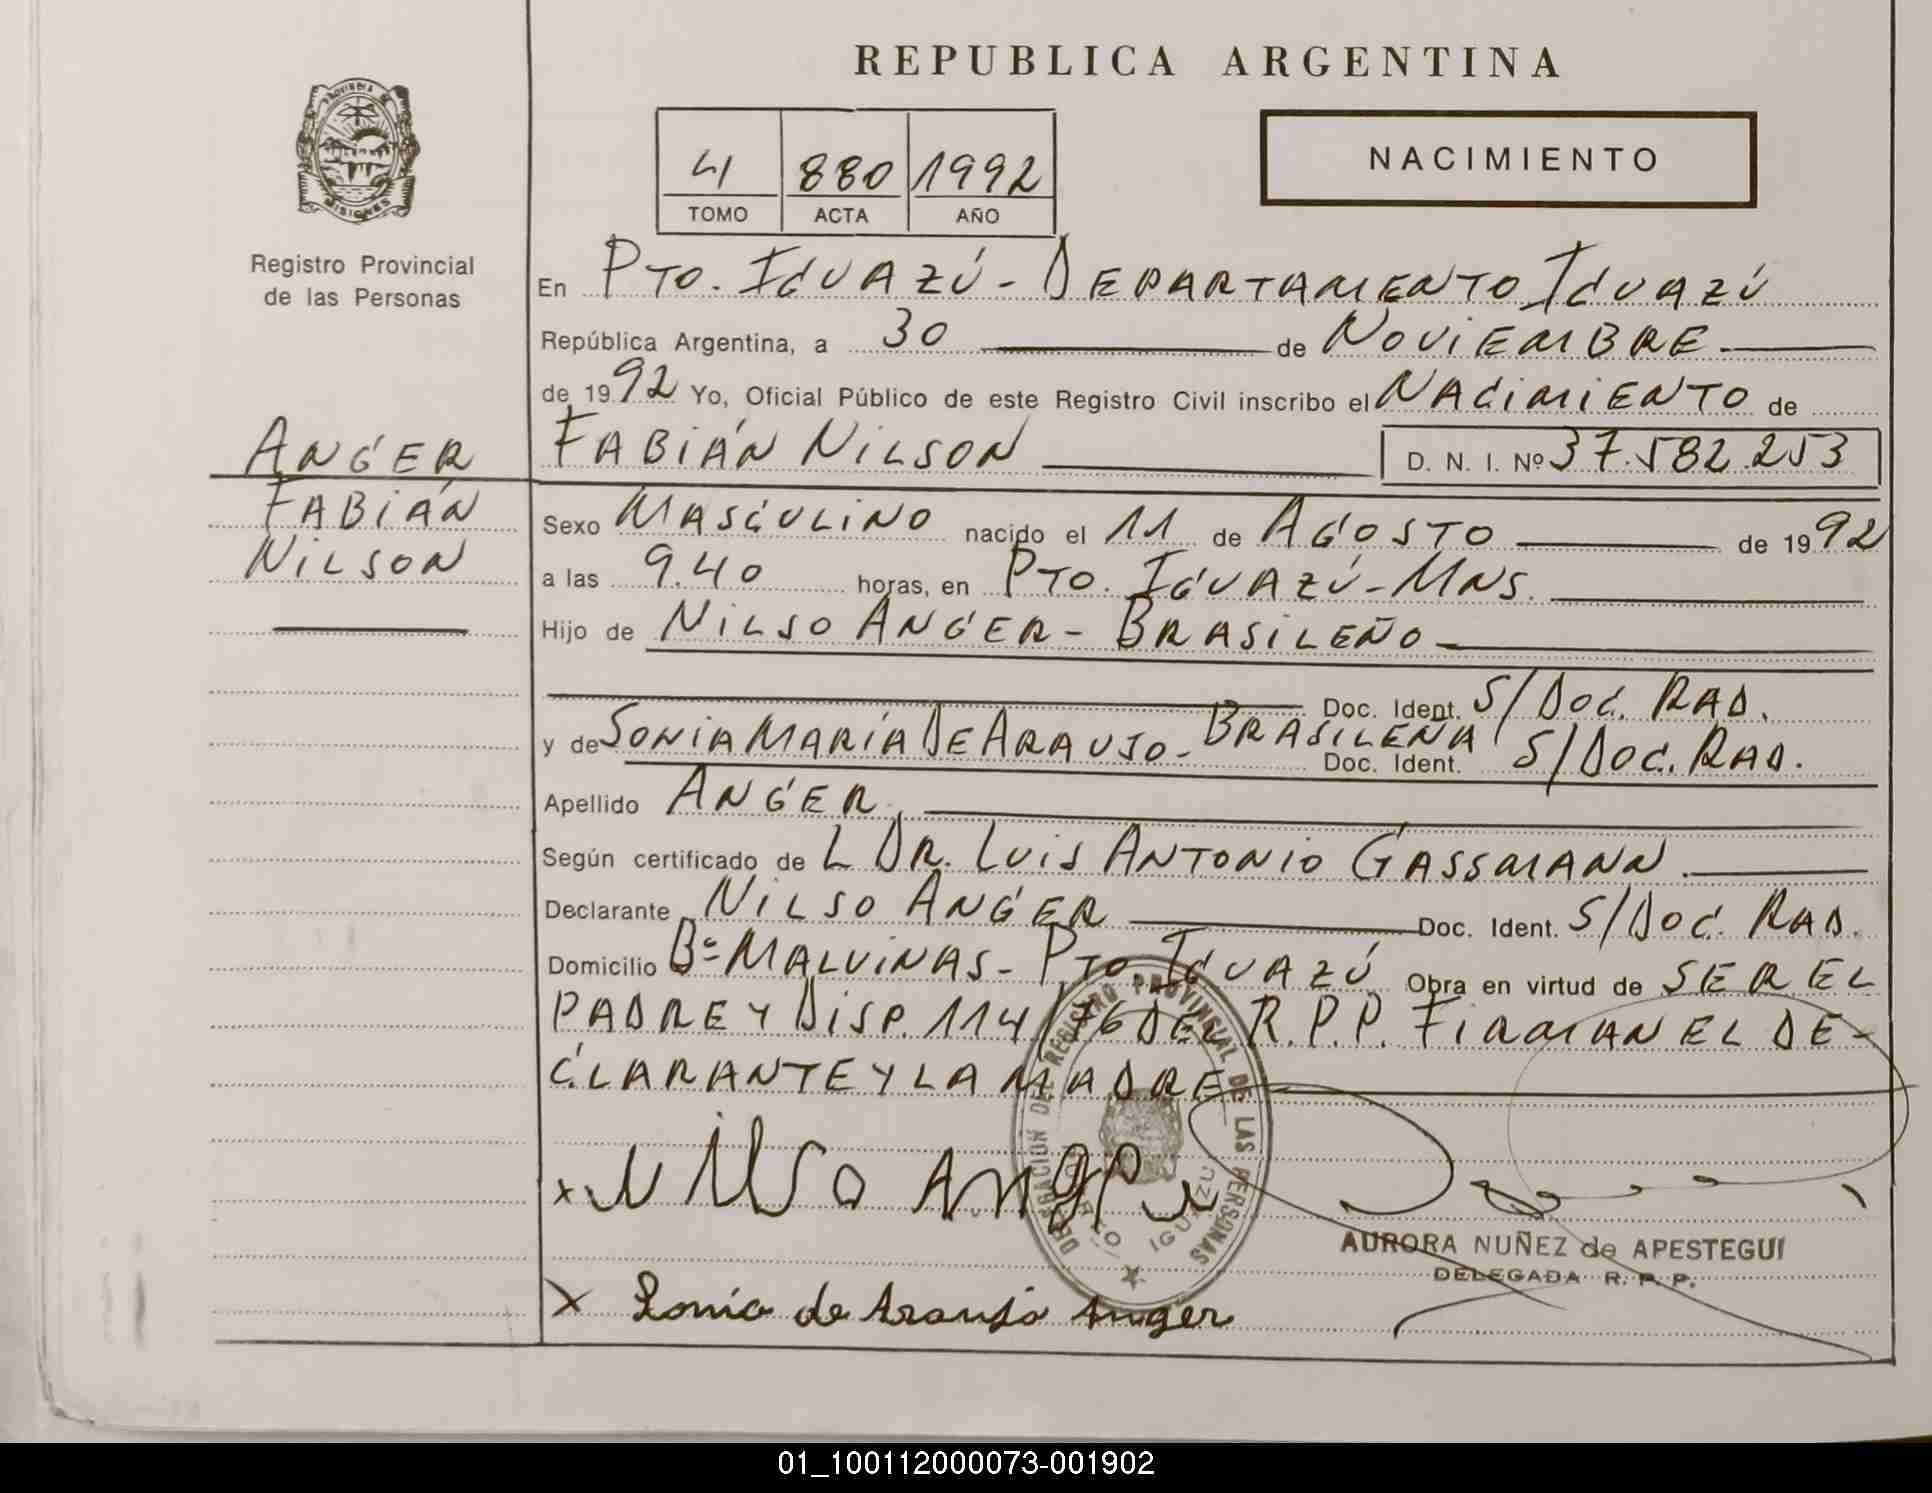 REPUBLICA ARGENTINA
PROVINCIA DE
MISIONES
Registro Provincial
de las Personas
4 880 1992
TOMO ACTA AÑO
NACIMIENTO
En PTO. IGUAZÚ - DEPARTAMENTO IGUAZÚ
República Argentina, a 30 de NOVIEMBRE
de 1992 Yo, Oficial Público de este Registro Civil inscribo el NACIMIENTO de
ANGER
FABIÁN NILSON D. N. I. Nº 37.582.253
FABIÁN
NILSON
Sexo MASCULINO nacido el 11 de AGOSTO de 1992
a las 9.40 horas, en PTO. IGUAZÚ - MNS.
Hijo de NILSO ANGER - BRASILEÑO
Doc. Ident. S/DOC. RAD.
y de SONIA MARÍA DE ARAUJO - BRASILEÑA Doc. Ident. S/DOC. RAD.
Apellido ANGER
Según certificado de L DR. LUIS ANTONIO GASSMANN
Declarante NILSO ANGER Doc. Ident. S/DOC. RAD.
Domicilio Bº MALVINAS - PTO. IGUAZÚ Obra en virtud de SER EL
PADRE Y DISP. 114/76 DEL R.P.P. FIRMAN EL DE-
CLARANTE Y LA MADRE
DELEGACION DEL REGISTRO PROVINCIAL DE LAS PERSONAS
IGUAZU
x Nilso Anger
AURORA NUÑEZ de APESTEGUI
DELEGADA R. P. P.
x Sonia de Araujo Anger
01_100112000073-001902